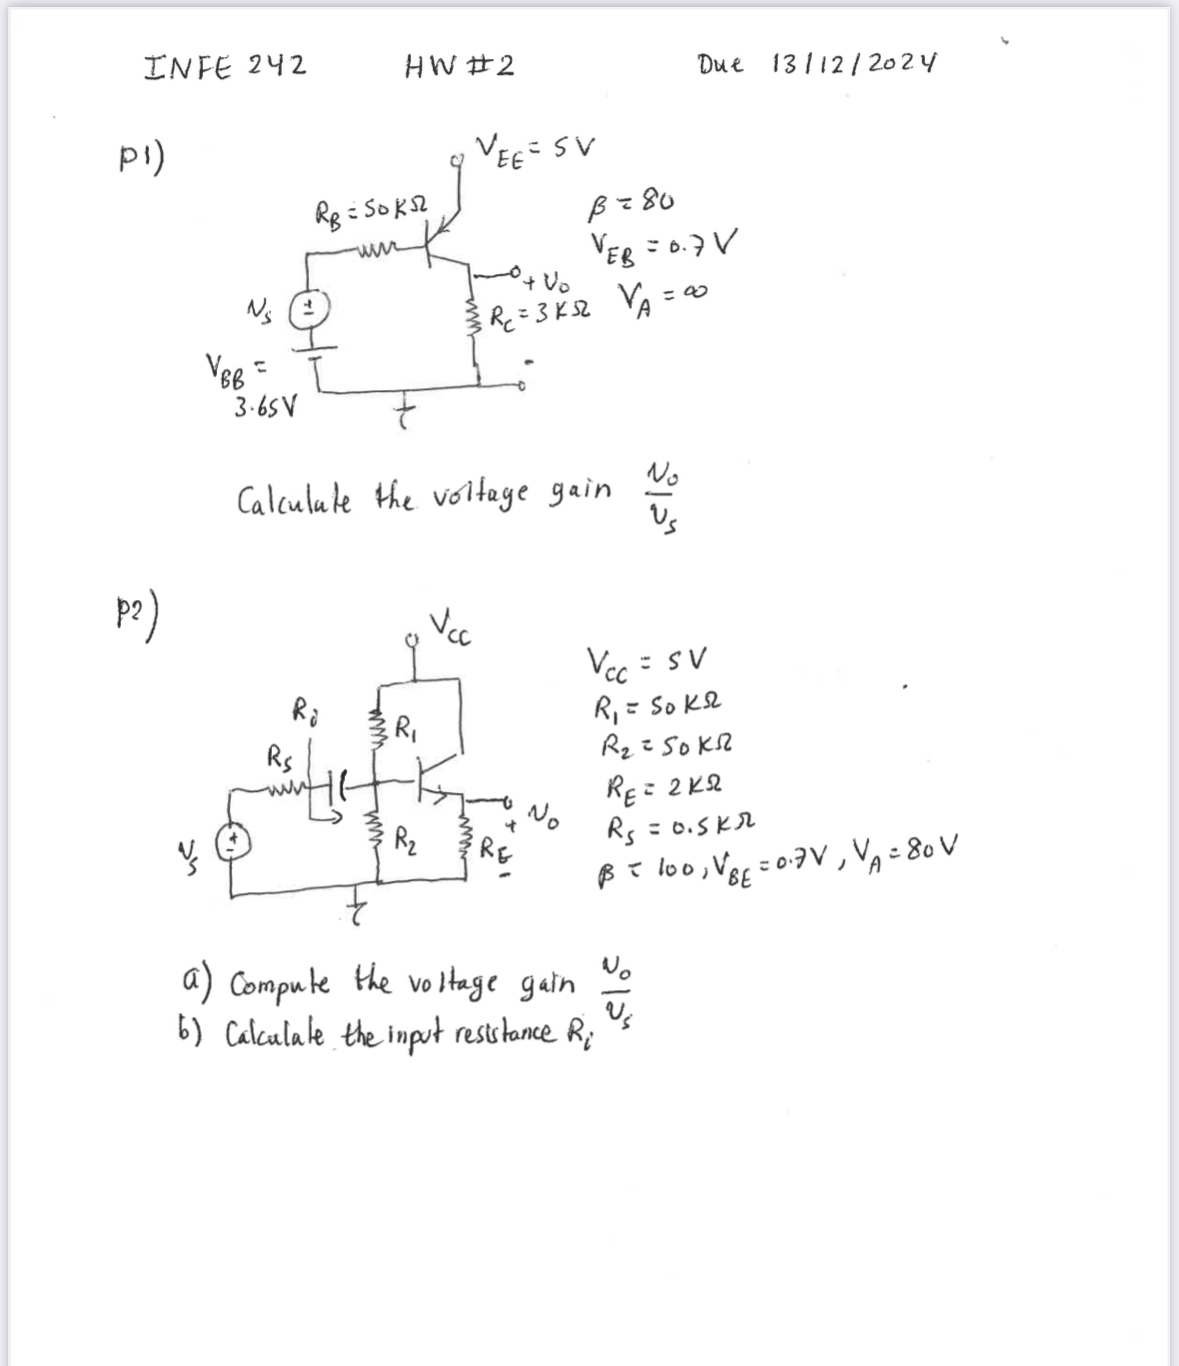 INFE 242 HW #2 Due 13/12/2024
P1)
VEE = 5V
RB = 50KΩ
β = 80
VEB = 0.7V
+ Vo
VA = ∞
Vs
+
-
RC = 3KΩ
VBB =
3.65V
-
Calculate the voltage gain Vo/Vs
P2)
VCC
VCC = 5V
Ri
R1
R1 = 50KΩ
RS
R2 = 50KΩ
RE = 2KΩ
+ Vo
RS = 0.5KΩ
Vs
+
-
R2
RE
-
β = 100, VBE = 0.7V, VA = 80V
a) Compute the voltage gain Vo/Vs
b) Calculate the input resistance Ri